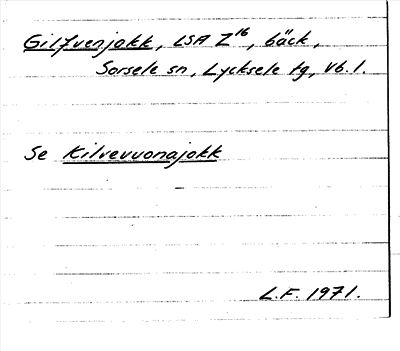 Gilfvenjokk, LSA Z16, bäck,
Sorsele sn, Lycksele tg, Vb. l.
Se Kilvevuonajokk
L.F. 1971.